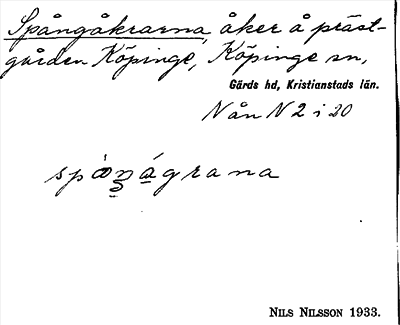 Spångåkrarna, åker å präst-
gården Köpinge, Köpinge sn,
Gärds hd, Kristianstads län.
N ån N 2 i 20
NILS NILSSON 1933.